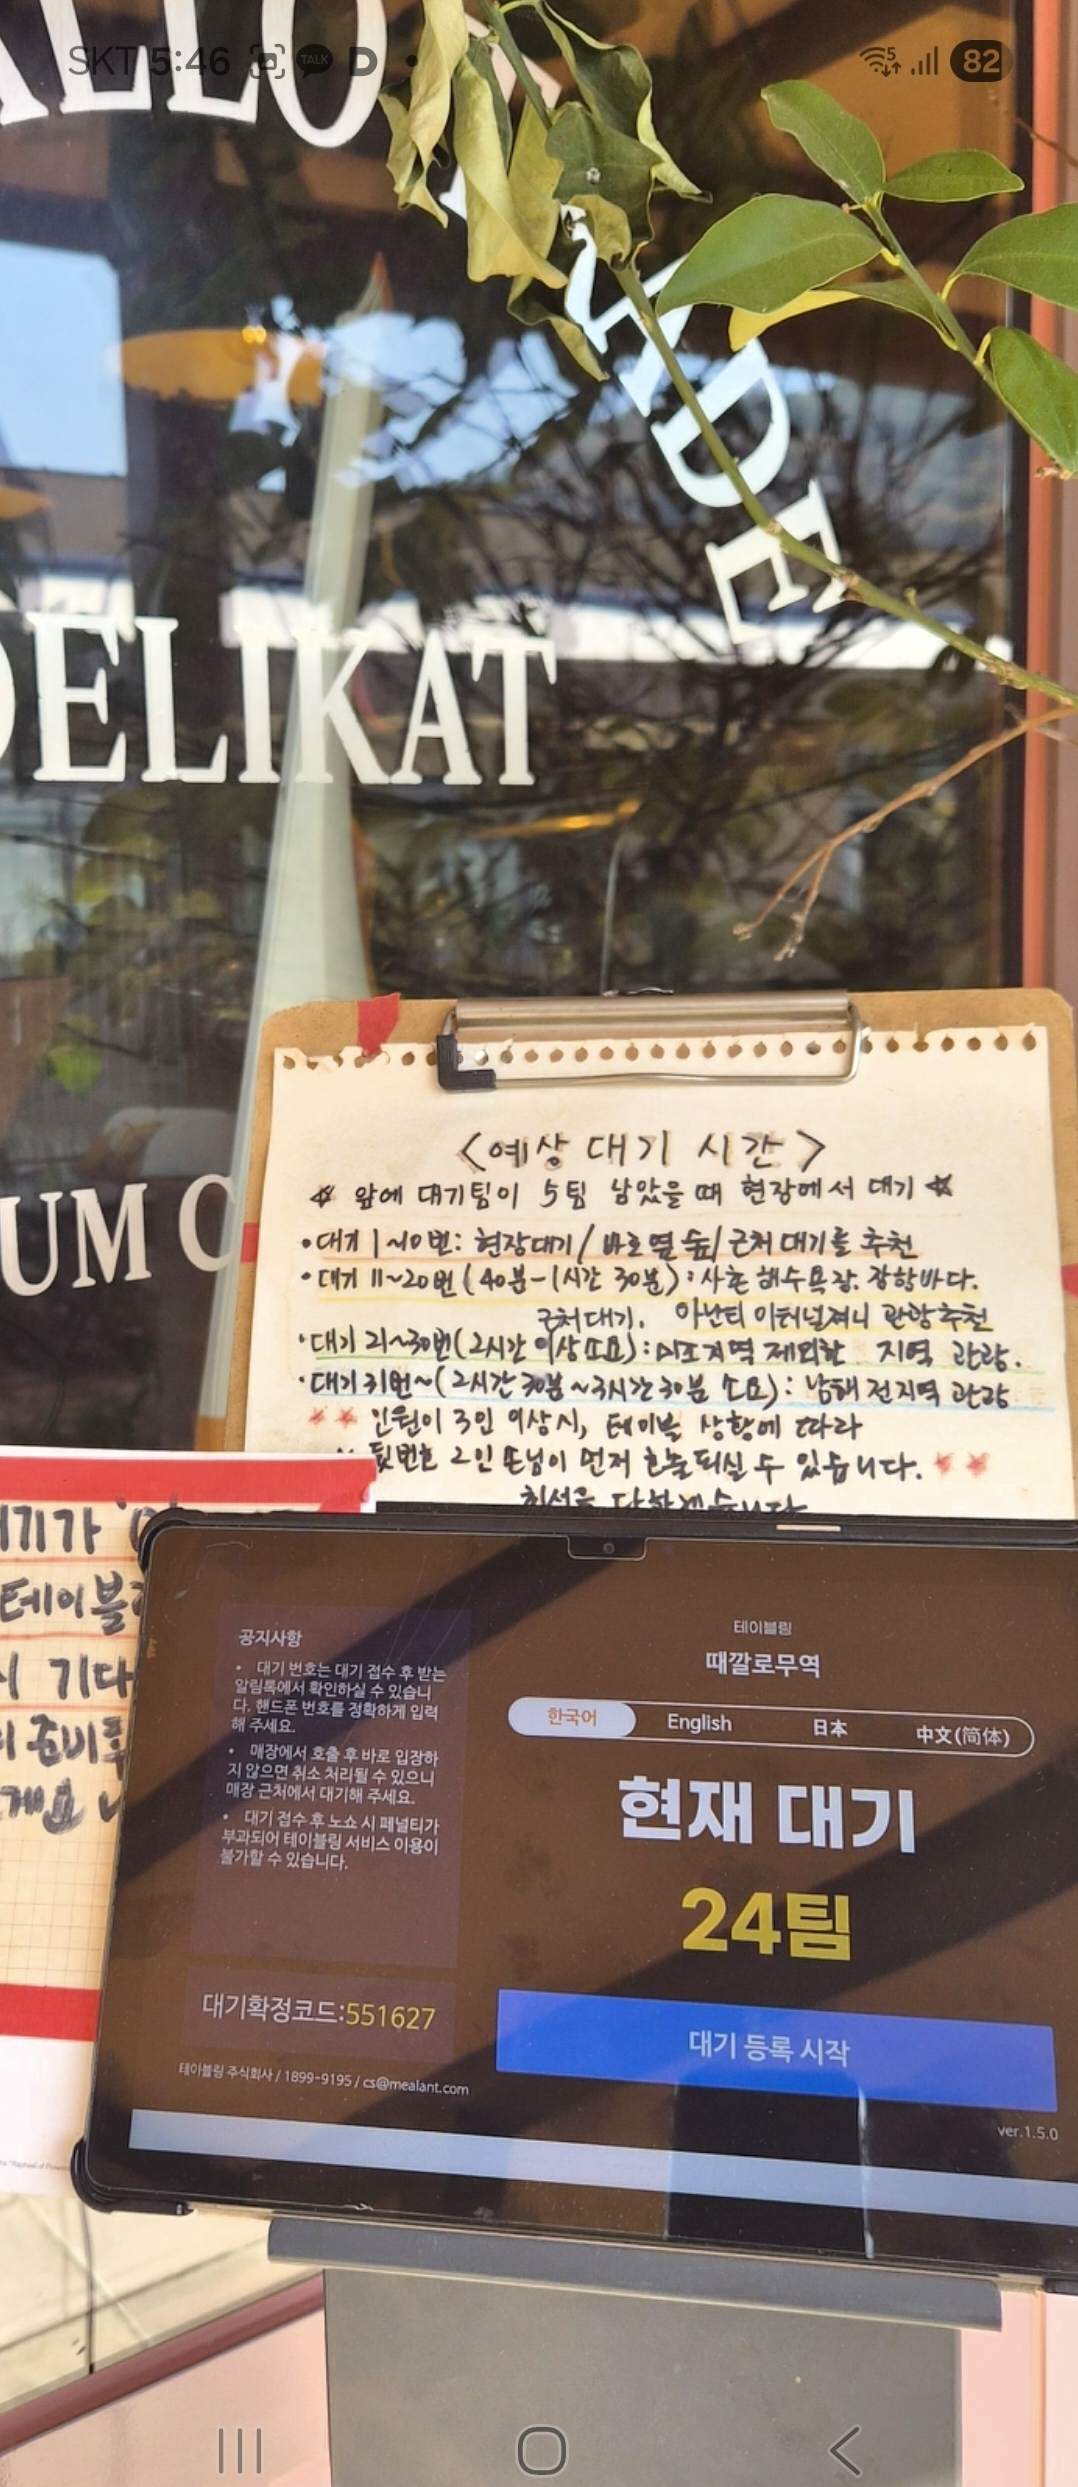 SKT 5:46 TALK D 82
DELIKAT
UM C
<예상 대기 시간>
☆ 앞에 대기팀이 5팀 남았을 때 현장에서 대기 ☆
•대기 1~10번: 현장대기/ 바로 옆 숲/ 근처 대기를 추천
•대기 11~20번(40분-1시간 30분):사촌 해수욕장. 장항바다.
근처대기. 아난티 이터널저니 관광추천
•대기 21~30번(2시간 이상 소요):미조지역 제외한 지역 관광.
•대기 31번~(2시간 30분~3시간 30분 소요): 남해 전지역 관광
인원이 3인 이상시, 테이블 상황에 따라
뒷번호 2인 손님이 먼저 호출되실 수 있습니다.
최선을 다하겠습니다
테이블
기다
공지사항
• 대기 번호는 대기 접수 후 받는
알림톡에서 확인하실 수 있습니
다. 핸드폰 번호를 정확하게 입력
해 주세요.
• 매장에서 호출 후 바로 입장하
지 않으면 취소 처리될 수 있으니
매장 근처에서 대기해 주세요.
• 대기 접수 후 노쇼 시 페널티가
부과되어 테이블링 서비스 이용이
불가할 수 있습니다.
대기확정코드:551627
테이블링 주식회사 / 1899-9195 / cs@mealant.com
테이블링
때깔로무역
한국어 English 日本 中文(简体)
현재 대기
24팀
대기 등록 시작
ver.1.5.0